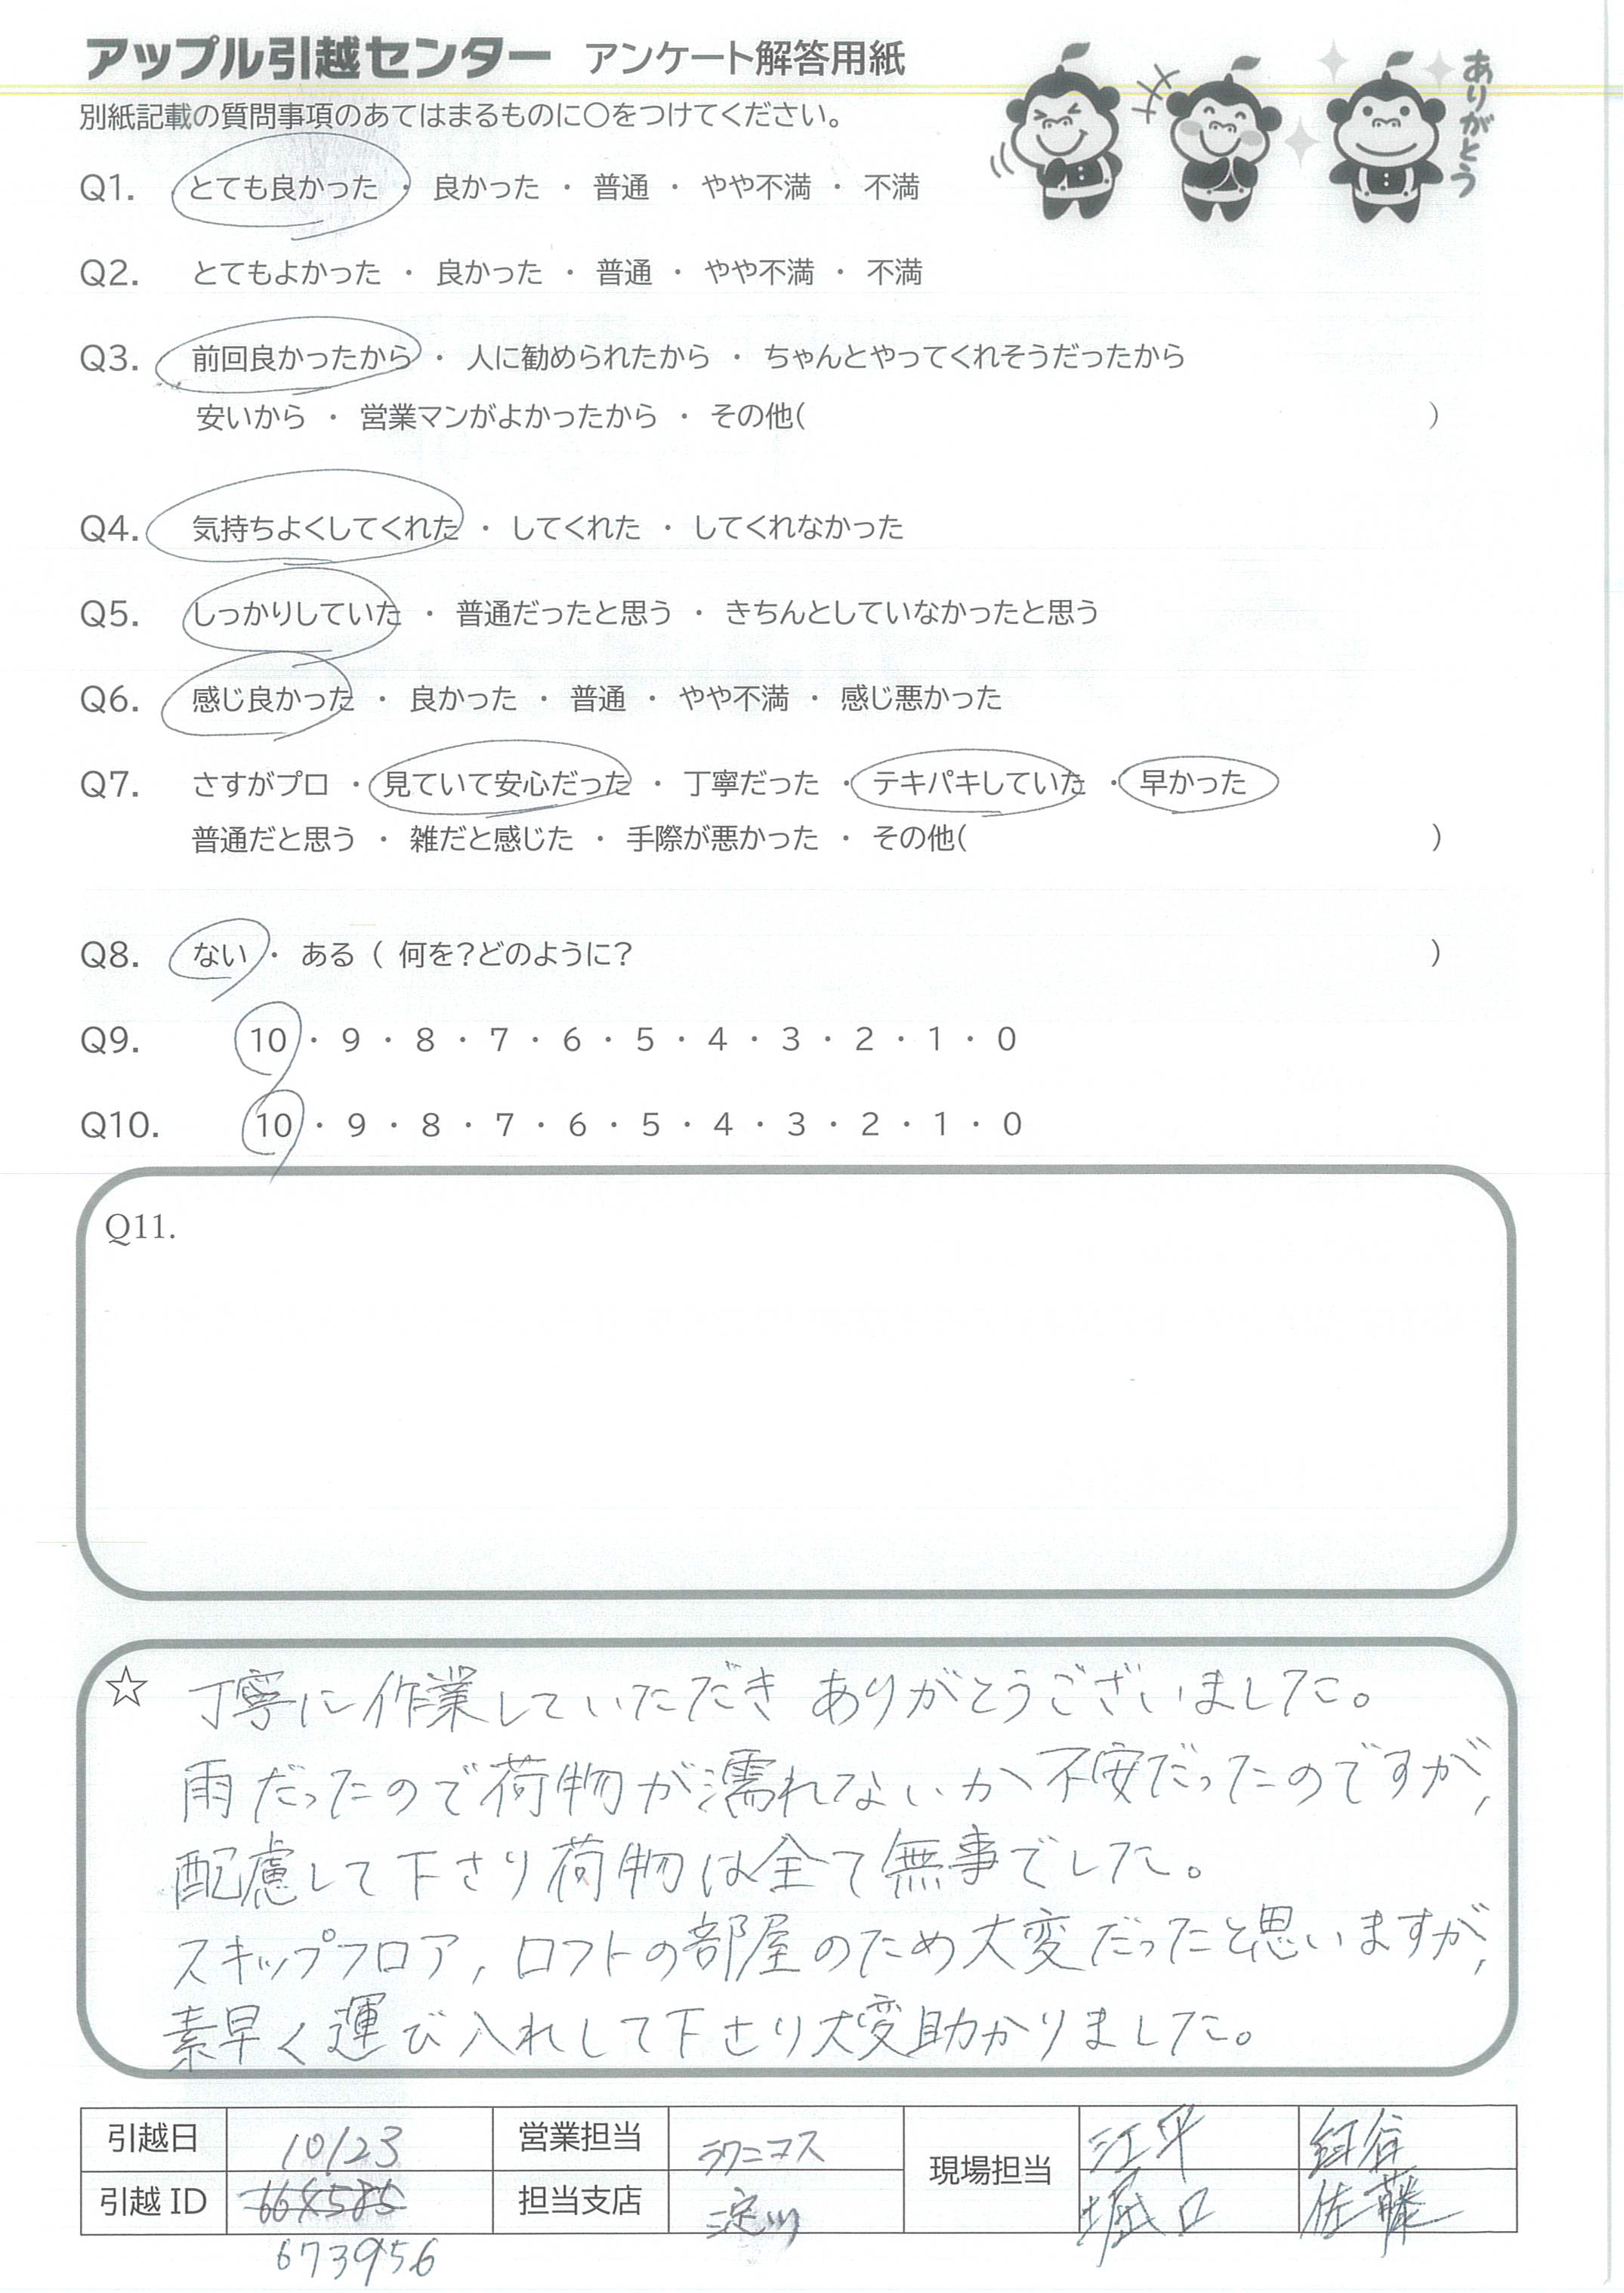 アップル引越センター アンケート解答用紙
ありがとう
別紙記載の質問事項のあてはまるものに○をつけてください。
Q1. とても良かった ・ 良かった ・ 普通 ・ やや不満 ・ 不満
Q2. とてもよかった ・ 良かった ・ 普通 ・ やや不満 ・ 不満
Q3. 前回良かったから ・ 人に勧められたから ・ ちゃんとやってくれそうだったから
安いから ・ 営業マンがよかったから ・ その他( )
Q4. 気持ちよくしてくれた ・ してくれた ・ してくれなかった
Q5. しっかりしていた ・ 普通だったと思う ・ きちんとしていなかったと思う
Q6. 感じ良かった ・ 良かった ・ 普通 ・ やや不満 ・ 感じ悪かった
Q7. さすがプロ ・ 見ていて安心だった ・ 丁寧だった ・ テキパキしていた ・ 早かった
普通だと思う ・ 雑だと感じた ・ 手際が悪かった ・ その他( )
Q8. ない ・ ある ( 何を?どのように? )
Q9. 10 ・ 9 ・ 8 ・ 7 ・ 6 ・ 5 ・ 4 ・ 3 ・ 2 ・ 1 ・ 0
Q10. 10 ・ 9 ・ 8 ・ 7 ・ 6 ・ 5 ・ 4 ・ 3 ・ 2 ・ 1 ・ 0
Q11.
☆ 丁寧に作業していただき ありがとうございました。
雨だったので荷物が濡れないか不安だったのですが,
配慮して下さり荷物は全て無事でした。
スキップフロア, ロフトの部屋のため大変だったと思いますが,
素早く運び入れして下さり大変助かりました。
引越日 10/23 営業担当 現場担当 江平
引越ID 664585 担当支店 淀川 堀口 佐藤
673956